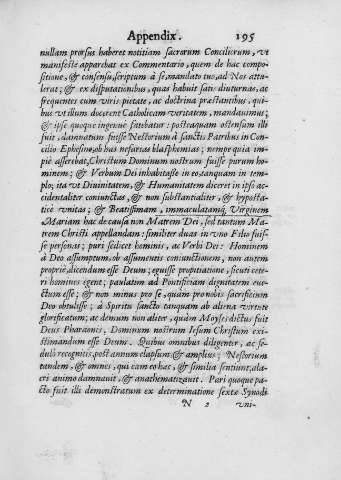 Appendix. 195
nullam prorsus haberet notitiam sacrarum Conciliorum, vt
manifeste apparebat ex Commentario, quem de hac compo-
sitione, & consensu, scriptum à se, mandato tuo, ad Nos attu-
lerat; & ex disputationibus, quas habuit satis diuturnas, ac
frequentes cum viris pietate, ac doctrina præstantibus, qui-
bus vt illum docerent Catholicam veritatem, mandauimus;
& ipse quoque ingenuè fatebatur: posteaquam ostensum illi
fuit, damnatum fuisse Nestorium à sanctis Patribus in Con-
cilio Ephesino, ob has nefarias blasphemias; nempe quia im-
piè asserebat, Christum Dominum nostrum fuisse purum ho-
minem; & Verbum Dei inhabitasse in eo, tanquam in tem-
plo; ita vt Diuinitatem, & Humanitatem diceret in ipso ac-
cidentaliter coniunctas, & non substantialiter, & hyposta-
ticè vnitas; & Beatissimam, immaculatamq; Virginem
Mariam hac de causa non Matrem Dei, sed tantum Ma-
trem Christi appellandam: similiter duas in vno Filio fuis-
se personas; puræ scilicet hominis, ac Verbi Dei: Hominem
à Deo assumptum, ob assumentis coniunctionem, non autem
propriè, dicendum esse Deum; eguisse propitiatione, sicuti cete-
ri homines egent; paulatim ad Pontificiam dignitatem eue-
ctum esse; & non minus pro se, quàm pro nobis sacrificium
Deo obtulisse; à Spiritu sancto tanquam ab aliena virtute
glorificatum; ac demum non aliter, quàm Moyses dictus fuit
Deus Pharaonis, Dominum nostrum Iesum Christum exi-
stimandum esse Deum. Quibus omnibus diligenter, ac se-
dulò recognitis, post annum elapsum & amplius; Nestorium
tandem, & omnes, qui cum eo hæc, & similia sentiunt, ala-
cri animo damnauit, & anathematizauit. Pari quoque pa-
cto fuit illi demonstratum ex determinatione sextæ Synodi
N 2 vni-